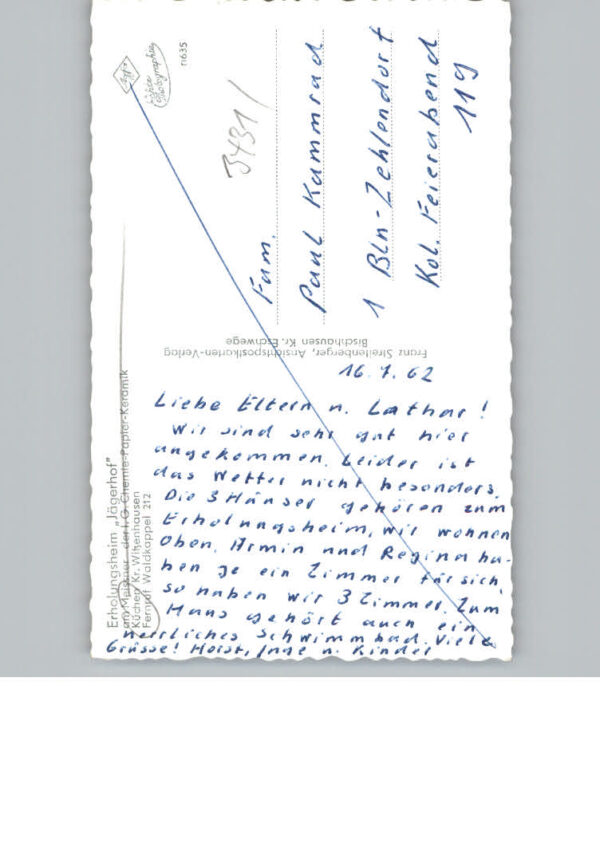 Erholungsheim „Jägerhof"
am Meißner – der I. G. Chemie-Papier-Keramik
Küchen Kr. Witzenhausen
Fernruf Waldkappel 212
16. 7. 62
Liebe Eltern u. Lothar!
Wir sind sehr gut hier
angekommen. Leider ist
das Wetter nicht besonders.
Die 3 Häuser gehören zum
Erholungsheim, wir wohnen
Oben. Armin und Regina ha-
ben je ein Zimmer für sich
so haben wir 3 Zimmer. Zum
Haus gehört auch ein
herrliches Schwimmbad. Viele
Grüsse! Horst, Inge u. Kinder
Franz Streitenberger, Ansichtspostkarten-Verlag
Bischhausen Kr. Eschwege
n635
3431/
Fam.
Paul Kammrad
1 Bln-Zehlendorf
Kol. Feierabend
119